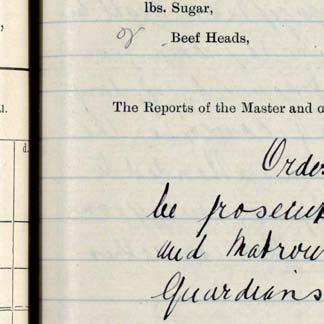 lbs. Sugar,
Beef Heads,
l.
d.
The Reports of the Master and o
Orde
be prosecu
and Matron
Guardians